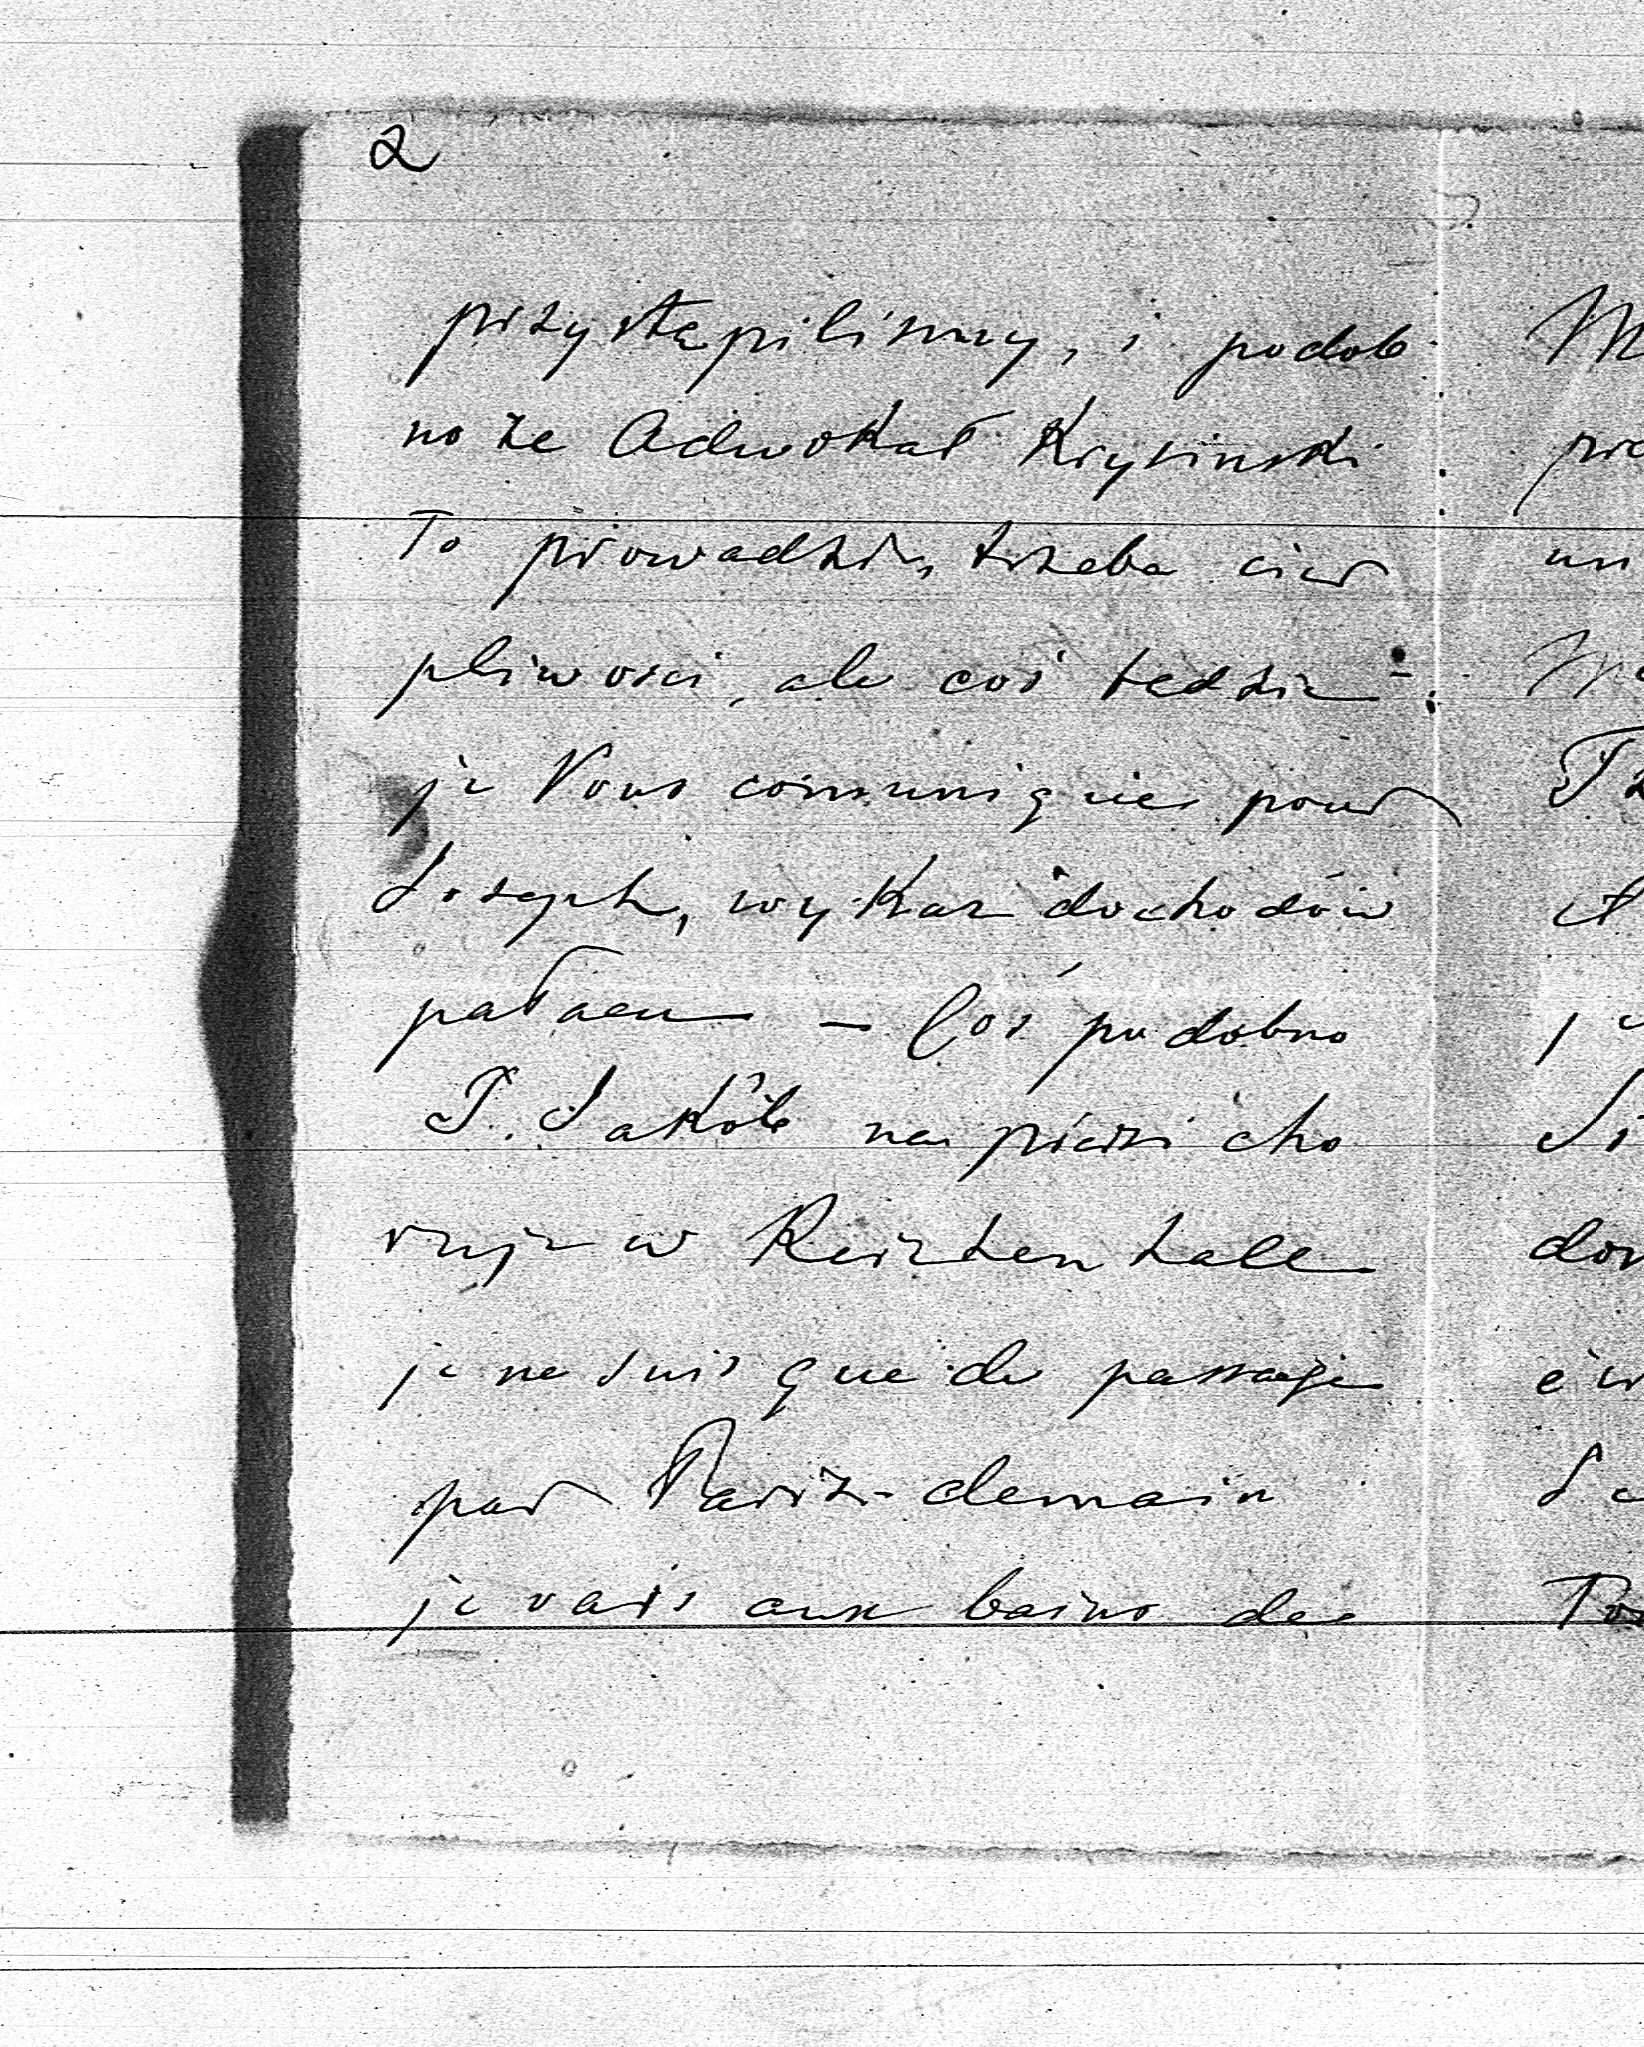 2
przystąpilismy, i podob
no że Adwokat Krysinski
To prowadzi, trzeba cier
pliwosci, ale coś będzie -
je Vous comuniques pour
Joseph, wykaz dochodów
pałacu — Coś podobno
P. Jakób na piersi cho
ruje w Reichenhale
je ne suis que de passage
par Pariz - demain
je vais aux bains de